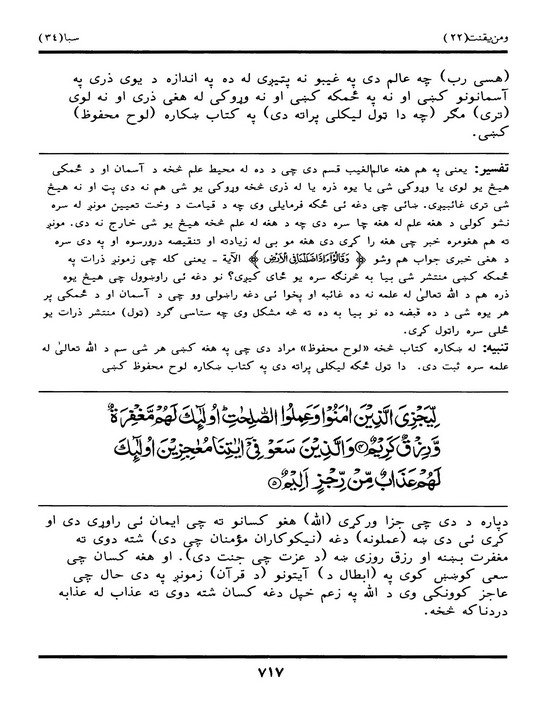 ومن يقنت(٢٢) سبا(٣٤)
(هسی رب) چه عالم دی په غیبو نه پتیږی له ده په اندازه د یوی ذری په
آسمانونو کښی او نه په ځمکه کښی او نه وړوکی له هغی ذری او نه لوی
(تری) مگر (چه دا ټول لیکلی پراته دی) په کتاب ښکاره (لوح محفوظ)
کښی.
تفسیر: یعنی په هم هغه عالم‌الغیب قسم دی چی د ده له محیط علم څخه د آسمان او د ځمکی
هیڅ یو لوی یا وړوکی شی یا یوه ذره یا له ذری څخه وړوکی یو شی هم نه دی پت او نه هیڅ
شی تری غائبیږی. ښائی چی دغه ئی ځکه فرمایلی وی چه د قیامت د وخت تعیین مونږ له سره
نشو کولی د هغه علم له هغه چا سره دی چه د هغه له علم څخه هیڅ یو شی خارج نه دی. مونږ
ته هم هغومره خبر چی هغه را کړی دی هغه مو بی له زیادته او تنقیصه درورسوه او په دی سره
د هغی خبری جواب هم وشو ﴿ وَقَالُوٓا۟ ءَاِذَا ضَلَلْنَا فِى الْاَرْضِ ﴾ الآیة - یعنی کله چی زمونږ ذرات په
ځمکه کښی منتشر شی بیا به څرنگه سره یو ځای کیږی؟ نو دغه ئی راوښوول چی هیڅ یوه
ذره هم د الله تعالیٰ له علمه نه ده غائبه او پخوا ئی دغه راښولی وو چی د آسمان او د ځمکی پر
هر یوه شی د ده قبضه ده نو بیا به ده ته څه مشکل وی چه ستاسی گرد (تول) منتشر ذرات یو
ځلی سره راټول کړی.
تنبیه: له ښکاره کتاب څخه «لوح محفوظ» مراد دی چی په هغه کښی هر شی سم د الله تعالیٰ له
علمه سره ثبت دی. دا ټول ځکه لیکلی پراته دی په کتاب ښکاره لوح محفوظ کښی
لِّيَجْزِىَ الَّذِيْنَ اٰمَنُوْا وَعَمِلُوا الصّٰلِحٰتِ ؕ اُولٰٓئِكَ لَهُمْ مَّغْفِرَةٌ
وَّرِزْقٌ كَرِيْمٌ ۴ وَالَّذِيْنَ سَعَوْ فِىْٓ اٰيٰتِنَا مُعٰجِزِيْنَ اُولٰٓئِكَ
لَهُمْ عَذَابٌ مِّنْ رِّجْزٍ اَلِيْمٌ ۵
دپاره د دی چی جزا ورکړی (الله) هغو کسانو ته چی ایمان ئی راوړی دی او
کړی ئی دی ښه (عملونه) دغه (نیکوکاران مؤمنان چی دی) شته دوی ته
مغفرت بښنه او رزق روزی ښه (د عزت چی جنت دی). او هغه کسان چی
سعی کوښښ کوی په (ابطال د) آیتونو (د قرآن) زمونږ په دی حال چی
عاجز کوونکی وی د الله په زعم خپل دغه کسان شته دوی ته عذاب له عذابه
دردناکه څخه.
٧١٧